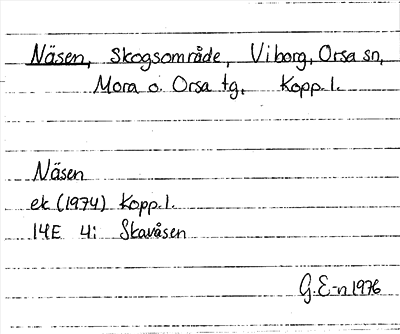 Näsen, Skogsområde, Viborg, Orsa sn,
Mora o. Orsa tg. Kopp. l.
Näsen
ek (1974) Kopp. l.
14E 4i Skavåsen
G. E-n 1976